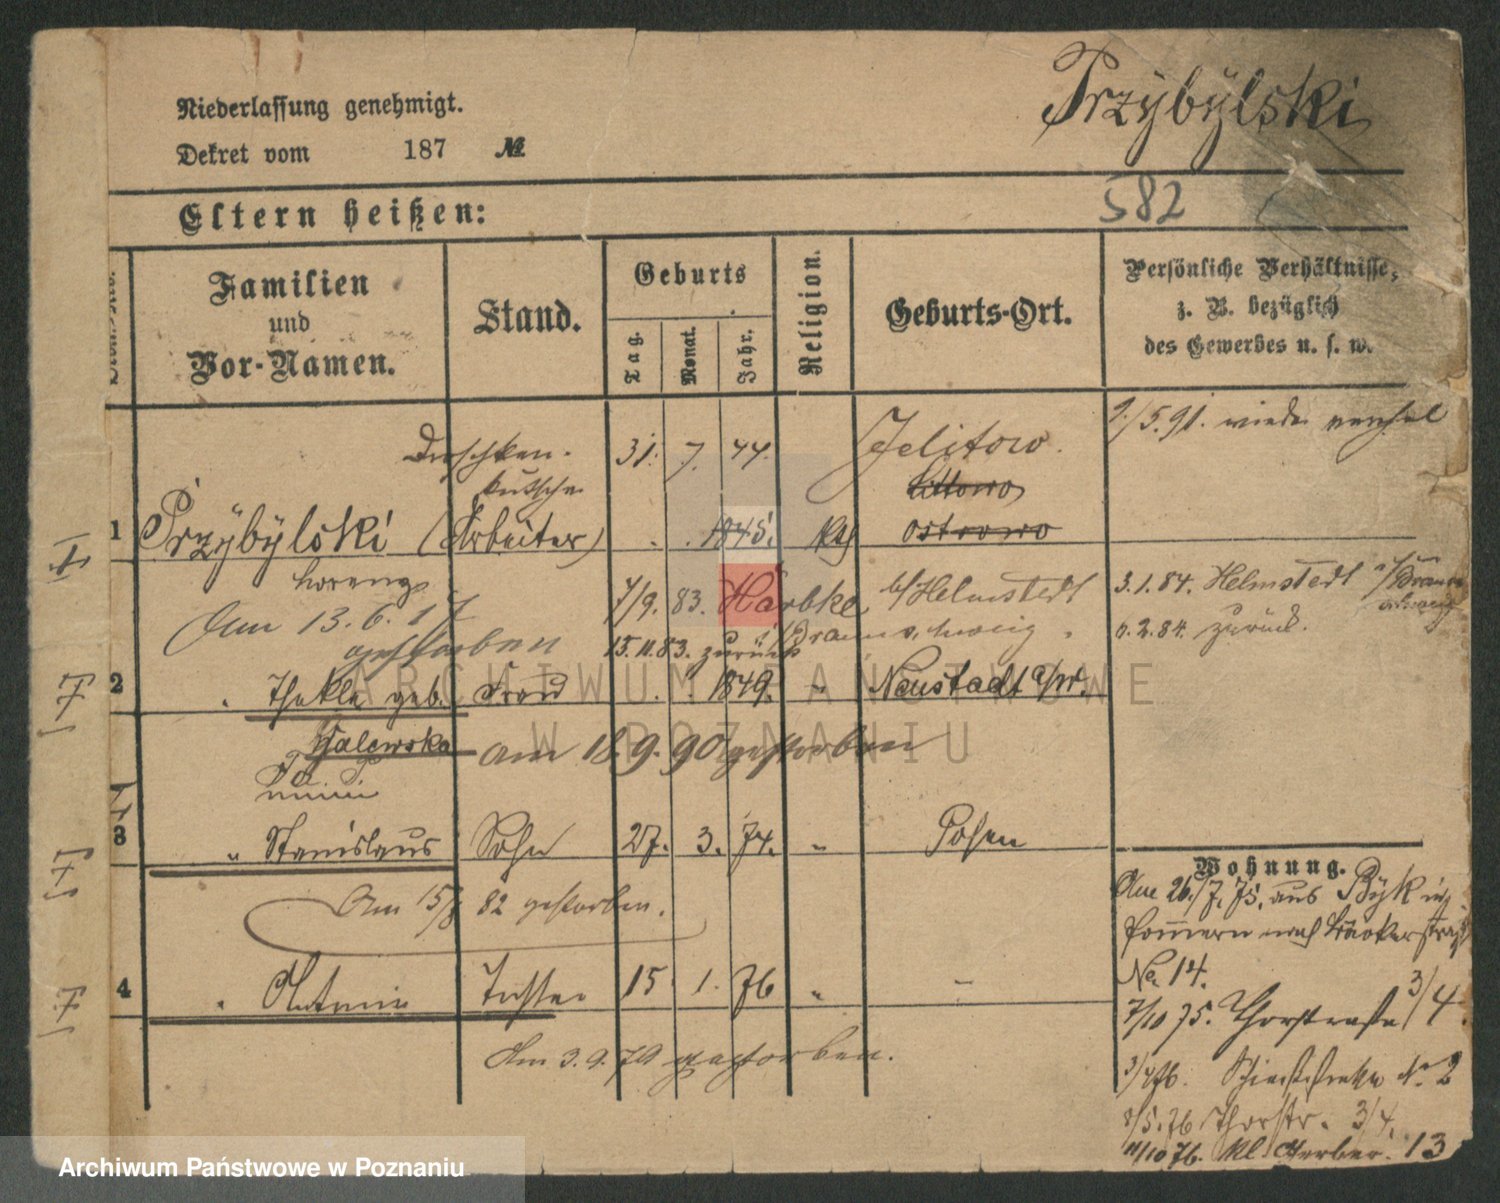 Przÿbÿlski
Niederlassung genehmigt.
Dekret vom 187 №
582
Eltern heißen:
Familien
und
Vor-Namen.
Stand.
Geburts
Tag.
Monat.
Jahr.
Religion.
Geburts-Ort.
Persönliche Verhältnisse,
z. B. bezüglich
des Gewerbes u. s. w.
1 Przÿbÿlski
Droschken-
kutscher
(Arbeiter)
31. 7. 44.
1845. kth
Jelitowo.
Littowo
Ostrowo
9./5.91. wieder
Lorenz
Am 13.6.17
gestorben
7/9. 83. Harbke b/Helmstedt
15.11.83. zurück
Braunschweig
3.1.84. Helmstedt
2.84. zurück.
2 " Thekla geb. Frau 1849. " Neustadt a/W.
am 18.9.90 gestorben
3 " Stanislaus Sohn 27. 3. 74. " Posen
Am 15/8 82 gestorben.
4 " Antonie Tochter 15 1. 76 " "
Am 3.9.79 gestorben.
Wohnung.
Am 26./7. 75. aus
Pommern nach
No 14.
7/10 75. Thorstraße 3/4.
3/4 76. No 2
8/5.76 Thorstr. 3/4.
11/10 76. kl. Gerber. 13
ARCHIWUM PAŃSTWOWE
W POZNANIU
Archiwum Państwowe w Poznaniu